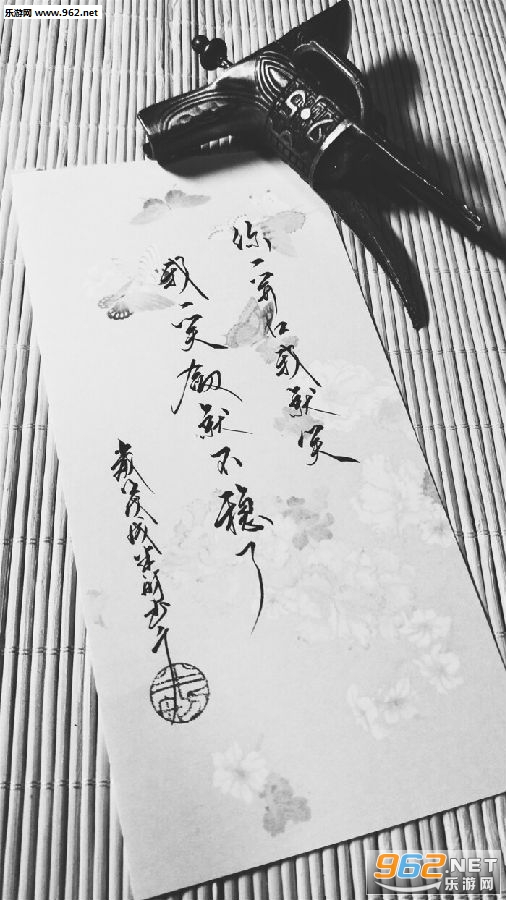 乐游网 www.962.net
你一開口我就笑
我一笑劔就不穩了
962.NET
乐游网